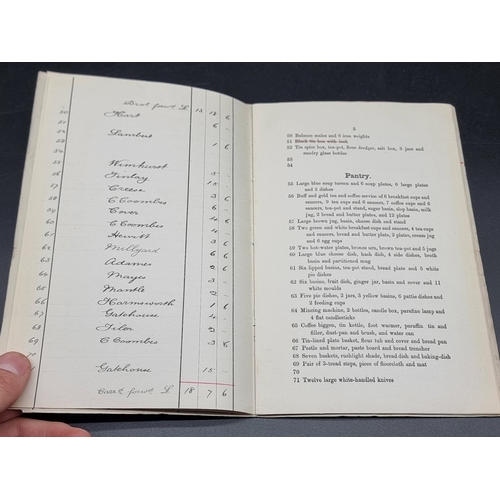 Brot forwd £ 13 12 6
50 Hart 2 6
51
52 Lambert 1 6
53
54
55 Wimhurst 5
56 Finlay 15
57 Creese 3
58 C Coombes 6
59 Cover 4
60 C Coombes 4
61 Hewitt 3 6
62 Millyard 6
63 Adames 2 6
64 Mayes 3
65 Mantle 2
66 Harmsworth 1 6
67 Gatehouse 4
68 Filer 2
69 C Coombes 3 6
70
71 Gatehouse 15
Card forwd £ 18 7 6
5
50 Balance scales and 6 iron weights
51 Black tin box with lock
52 Tin spice box, tea-pot, flour dredger, salt box, 3 jars and
sundry glass bottles
53
54
Pantry.
55 Large blue soup tureen and 6 soup plates, 9 large plates
and 2 dishes
56 Buff and gold tea and coffee service of 6 breakfast cups and
saucers, 9 tea cups and 6 saucers, 7 coffee cups and 6
saucers, tea-pot and stand, sugar basin, slop basin, milk
jug, 2 bread and butter plates, and 12 plates
57 Large brown jug, cheese dish and stand
58 Two green and white breakfast cups and saucers, 4 tea cups
and saucers, bread and butter plate, 5 plates, cream jug
and 6 egg cups
59 Two hot-water plates, bronze urn, brown tea-pot and 5 jugs
60 Large blue cheese dish, hash dish, 4 side dishes, broth
basin and partitioned mug
61 Six lipped basins, tea-pot stand, bread plate and 5 white
pie dishes
62 Six basins, fruit dish, ginger jar, basin and cover and 11
white moulds
63 Five pie dishes, 2 jars, 3 yellow basins, 6 pattie dishes and
2 feeding cups
64 Mincing machine, 2 bottles, candle box, paraffin lamp and
4 flat candlesticks
65 Coffee biggen, tin kettle, foot warmer, paraffin tin and
filler, dust-pan and brush, and water can
66 Tin-lined plate basket, flour tub and cover and bread pan
67 Pestle and mortar, paste board and bread trencher
68 Seven baskets, rushlight shade, bread dish and baking-dish
69 Pair of 3-tread steps, piece of floorcloth and mat
70
71 Twelve large white-handled knives